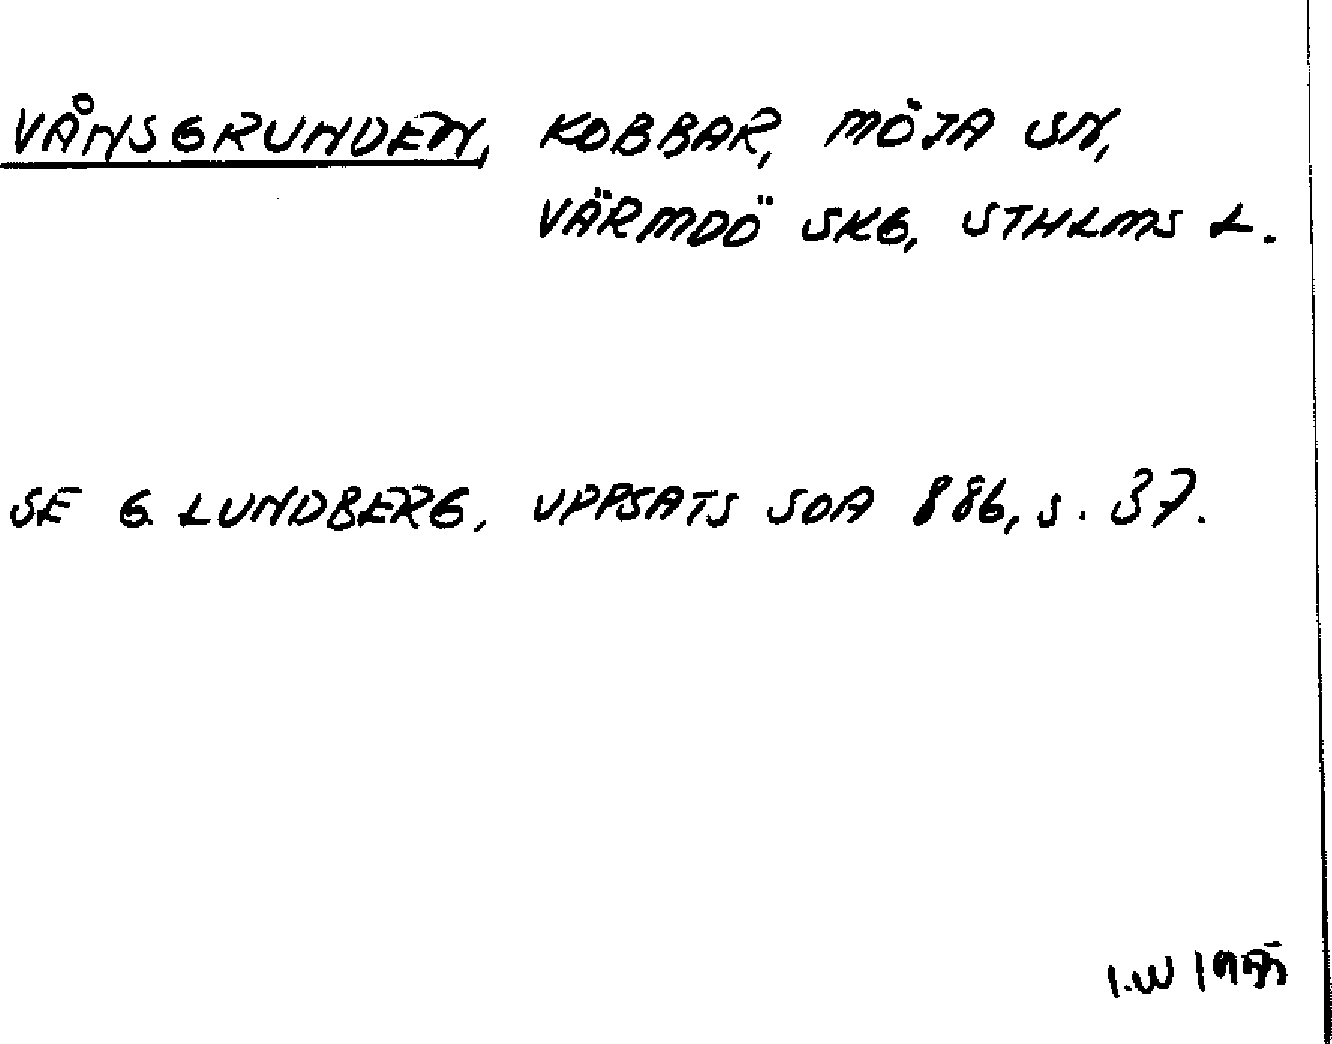 VÅNSGRUNDEN, KOBBAR, MÖJA SN,
VÄRMDÖ SKG, STHLMS L.
SE G. LUNDBERG, UPPSATS SOA 886, s. 37.
I.W